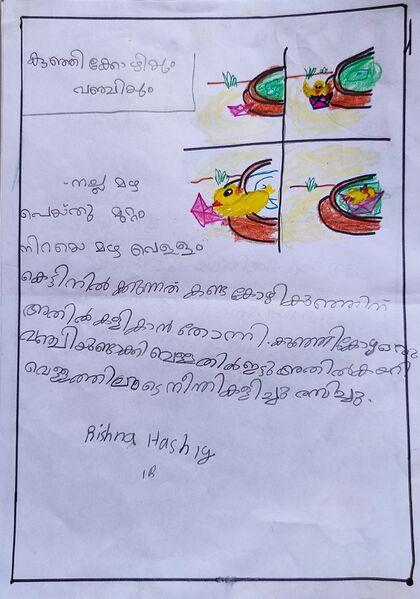 കുഞ്ഞിക്കോഴിയും
വഞ്ചിയും
നല്ല മഴ
പെയ്തു മുറ്റം
നിറയെ മഴ വെള്ളം
കെട്ടിനിൽക്കുന്നത് കണ്ട കോഴികുഞ്ഞിന്
അതിൽ കളിക്കാൻ തോന്നി. കുഞ്ഞികോഴി ഒരു
വഞ്ചിയുണ്ടാക്കി വെള്ളത്തിൽ ഇട്ടു അതിൽ കയറി
വെള്ളത്തിലൂടെ നീന്തികളിച്ചു രസിച്ചു.
Rishna Hashig
1B